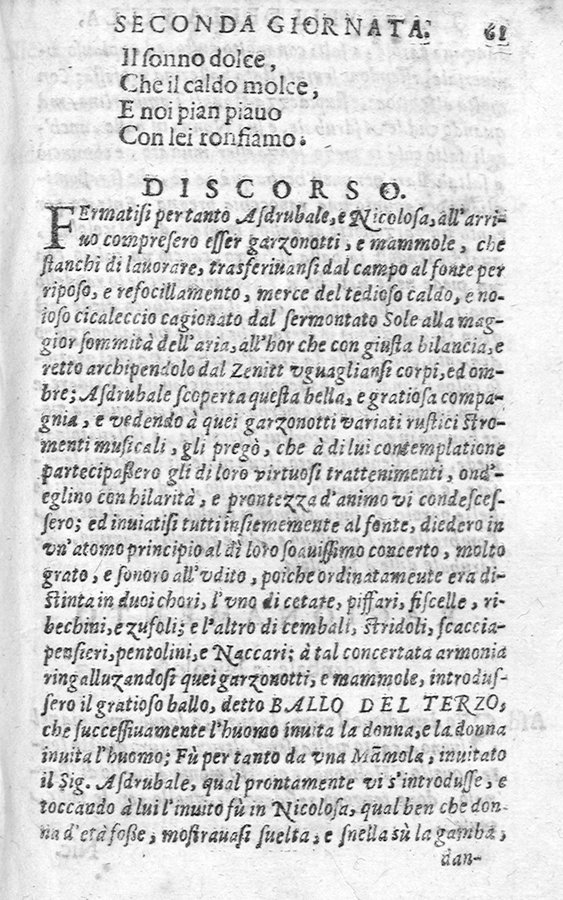 SECONDA GIORNATA. 61
Il sonno dolce,
Che il caldo molce,
E noi pian piauo
Con lei ronfiamo.
DISCORSO.
FErmatisi pertanto Asdrubale, e Nicolosa, all'arri-
uo compresero esser garzonotti, e mammole, che
stanchi di lauorare, trasferiuansi dal campo al fonte per
riposo, e refocillamento, merce del tedioso caldo, e no-
ioso cicaleccio cagionato dal sermontato Sole alla mag-
gior sommità dell'aria, all'hor che con giusta bilancia, e
retto archipendolo dal Zenitt vguagliansi corpi, ed om-
bre; Asdrubale scoperta questa bella, e gratiosa compa-
gnia, e vedendo à quei garzonotti variati rustici stro-
menti musicali, gli pregò, che à di lui contemplatione
partecipaßero gli di loro virtuosi trattenimenti, ond'
eglino con hilarità, e prontezza d'animo vi condesces-
sero; ed inuiatisi tutti insiememente al fonte, diedero in
vn'atomo principio al di loro soauissimo concerto, molto
grato, e sonoro all'vdito, poiche ordinatamente era di-
stinta in duoi chori, l'vno di cetare, piffari, fiscelle, ri-
bechini, e zufoli; e l'altro di cembali, stridoli, scaccia-
pensieri, pentolini, e Naccari; à tal concertata armonia
ringalluzandosi quei garzonotti, e mammole, introdus-
sero il gratioso ballo, detto BALLO DEL TERZO,
che successiuamente l'huomo inuita la donna, e la donna
inuita l'huomo; Fù per tanto da vna Mãmola, inuitato
il Sig. Asdrubale, qual prontamente vi s'introdusse, e
toccando à lui l'inuito fù in Nicolosa, qual ben che don-
na d'età foße, mostrauasi suelta, e snella sù la gamba,
dan-